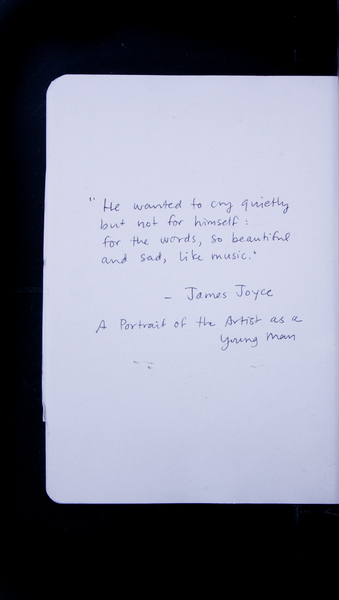 "He wanted to cry quietly
but not for himself:
for the words, so beautiful
and sad, like music."
- James Joyce
A Portrait of the Artist as a
Young Man